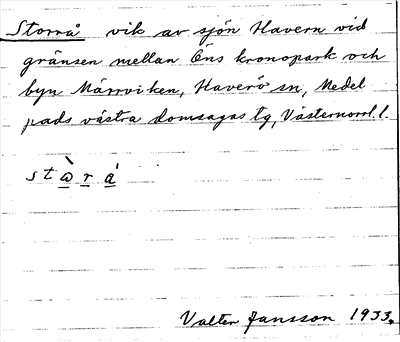 Storrå vik av sjön Havern vid
gränsen mellan Öns kronopark och
byn Märrviken, Haverö sn, Medel
pads västra domsagas tg, Västernorrl. l.
stὼrá
Valter Jansson 1933.